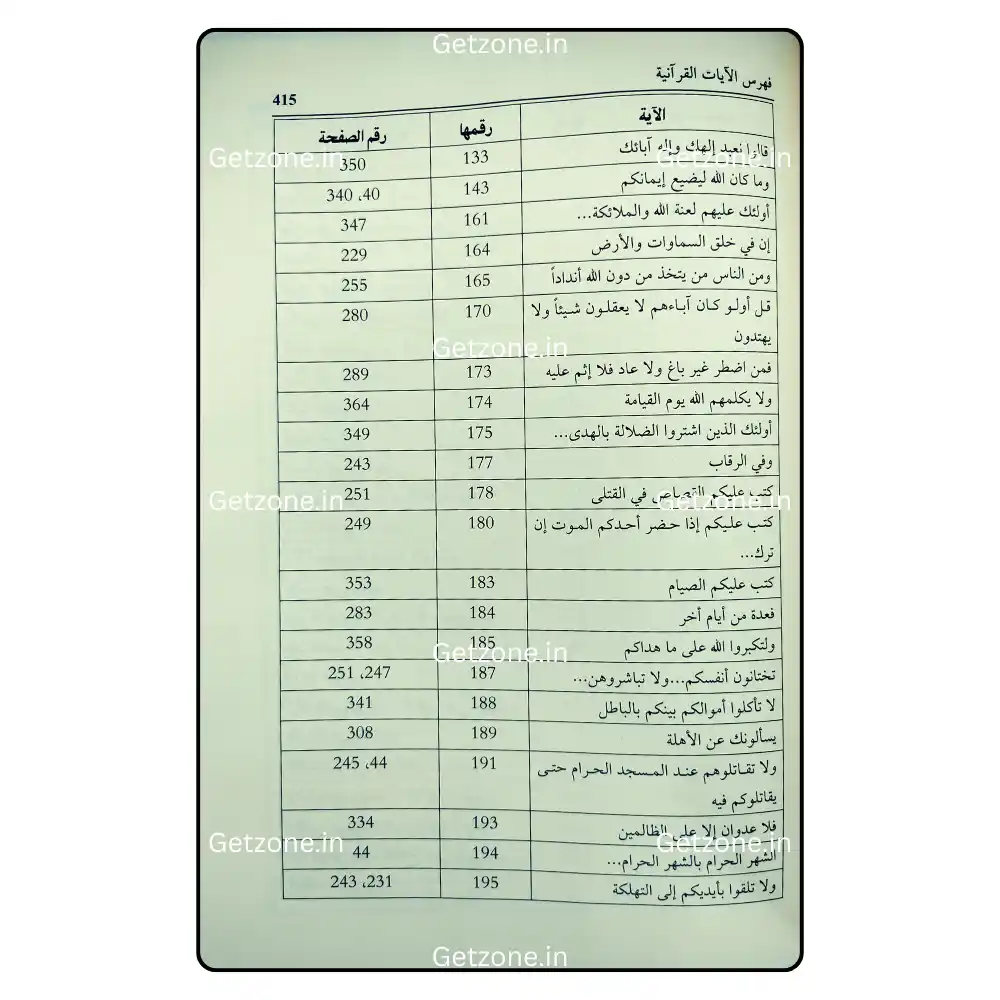 Getzone.in
فهرس الآيات القرآنية 415
الآية رقمها رقم الصفحة
قالوا نعبد إلهك وإله آبائك 133 350
وما كان الله ليضيع إيمانكم 143 40، 340
أولئك عليهم لعنة الله والملائكة... 161 347
إن في خلق السماوات والأرض 164 229
ومن الناس من يتخذ من دون الله أنداداً 165 255
قل أولو كان آباءهم لا يعقلون شيئاً ولا 170 280
يهتدون
فمن اضطر غير باغ ولا عاد فلا إثم عليه 173 289
ولا يكلمهم الله يوم القيامة 174 364
أولئك الذين اشتروا الضلالة بالهدى... 175 349
وفي الرقاب 177 243
كتب عليكم القصاص في القتلى 178 251
كتب عليكم إذا حضر أحدكم الموت إن 180 249
ترك...
كتب عليكم الصيام 183 353
فعدة من أيام أخر 184 283
ولتكبروا الله على ما هداكم 185 358
تختانون أنفسكم...ولا تباشروهن... 187 247، 251
لا تأكلوا أموالكم بينكم بالباطل 188 341
يسألونك عن الأهلة 189 308
ولا تقاتلوهم عند المسجد الحرام حتى 191 44، 245
يقاتلوكم فيه
فلا عدوان إلا على الظالمين 193 334
الشهر الحرام بالشهر الحرام... 194 44
ولا تلقوا بأيديكم إلى التهلكة 195 231، 243
Getzone.in
Getzone.in
Getzone.in
Getzone.in
Getzone.in
Getzone.in
Getzone.in
Getzone.in
Getzone.in
Getzone.in